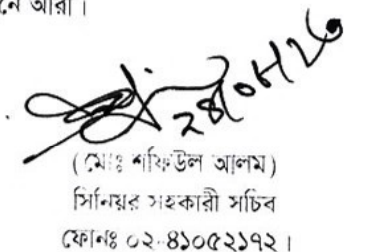 আরা।
২৪/০৮/২৩
(মোঃ শফিউল আলম)
সিনিয়র সহকারী সচিব
ফোনঃ ০২-৪১০৫২১৭২।